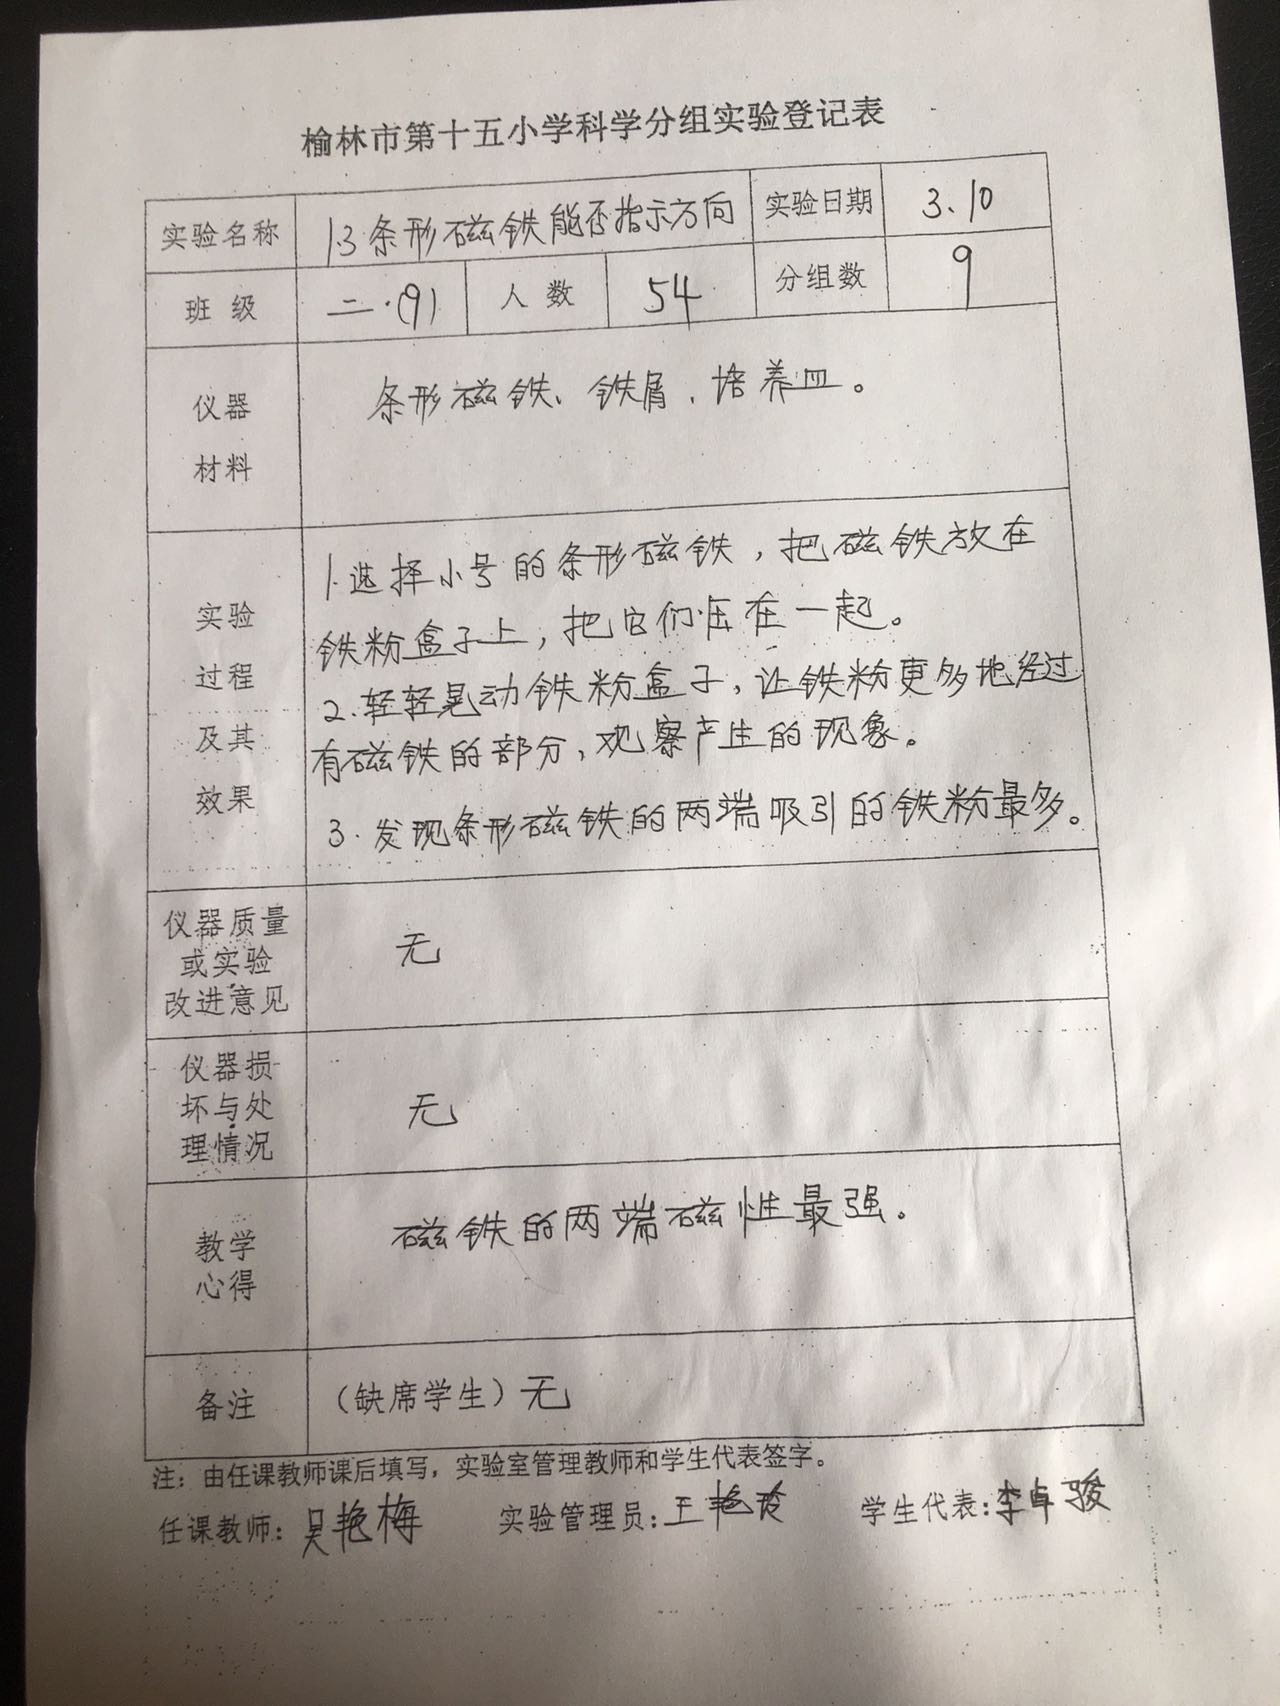 榆林市第十五小学科学分组实验登记表
实验名称 1.3 条形磁铁能否指示方向 实验日期 3.10
班 级 二.(9) 人 数 54 分组数 9
仪器
材料
条形磁铁、铁屑、培养皿。
实验
过程
及其
效果
1.选择小号的条形磁铁，把磁铁放在
铁粉盒子上，把它们压在一起。
2.轻轻晃动铁粉盒子，让铁粉更多地经过
有磁铁的部分，观察产生的现象。
3.发现条形磁铁的两端吸引的铁粉最多。
仪器质量
或实验
改进意见
无
仪器损
坏与处
理情况
无
教学
心得
磁铁的两端磁性最强。
备注 （缺席学生）无
注：由任课教师课后填写，实验室管理教师和学生代表签字。
任课教师：吴艳梅 实验管理员：王艳玲 学生代表：李卓骏